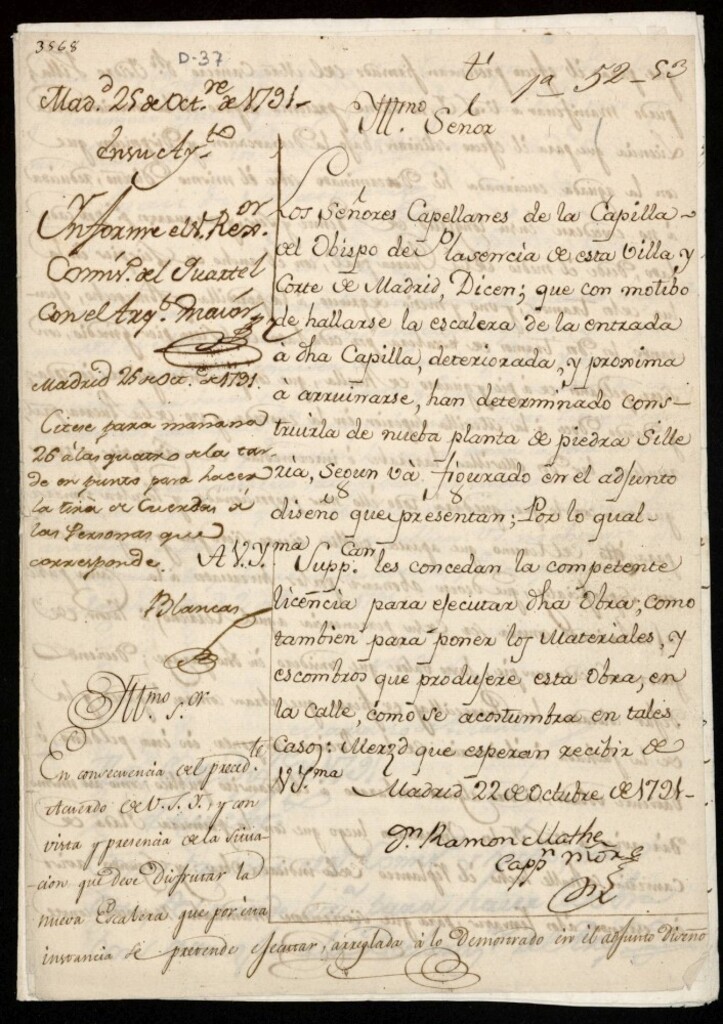 3868
D-37
tᵗ
1ª 52-53
Mad.ᵈ 25 de Oct.ʳᵉ de 1791-
En su Ay.ᵗᵒ
Informe el S. Rex.ᵒʳ
Comis. del Quartel
con el Arq.ᵗ maior
Madrid 25 de Oct.ᵉ de 1791.
Citese para mañana
26 á las quatro de la tar-
de en punto para hacer
la tira de Cuerdas á
las Personas que
corresponde.
Blancas
Ill.ᵐᵒ Señor
Los Señores Capellanes de la Capilla
del Obispo de Plasencia de esta Villa, y
Corte de Madrid, Dicen; que con motibo
de hallarse la escalera de la entrada
à dha Capilla, deteriorada, y proxima
à arruinarse, han determinado cons-
truirla de nueba planta de piedra Sille
ria, Segun và figurado en el adjunto
diseño que presentan; Por lo qual-
A V. Y.ᵐᵃ Supp.ᶜᵃⁿ les concedan la competente
licencia para ejecutar dha Obra, como
tambien para poner los Materiales, y
escombros que produjere esta Obra, en
la Calle, como se acostumbra en tales
Casos: Merzd que esperan recibir de
V Y.ᵐᵃ Madrid 22 de Octubre de 1791-
Dⁿ Ramon Mathe
Capp.ⁿ mor
Ill.ᵐᵒ S.ᵒʳ
En consecuencia del preced.ᵗᵉ
Acuerdo de V. S. I. y con
vista y presencia de la Situa-
cion que deve Disfrutar la
nueva Escalera que por esta
instancia se pretende ejecutar, arreglada à lo Demostrado en el adjunto Diseño